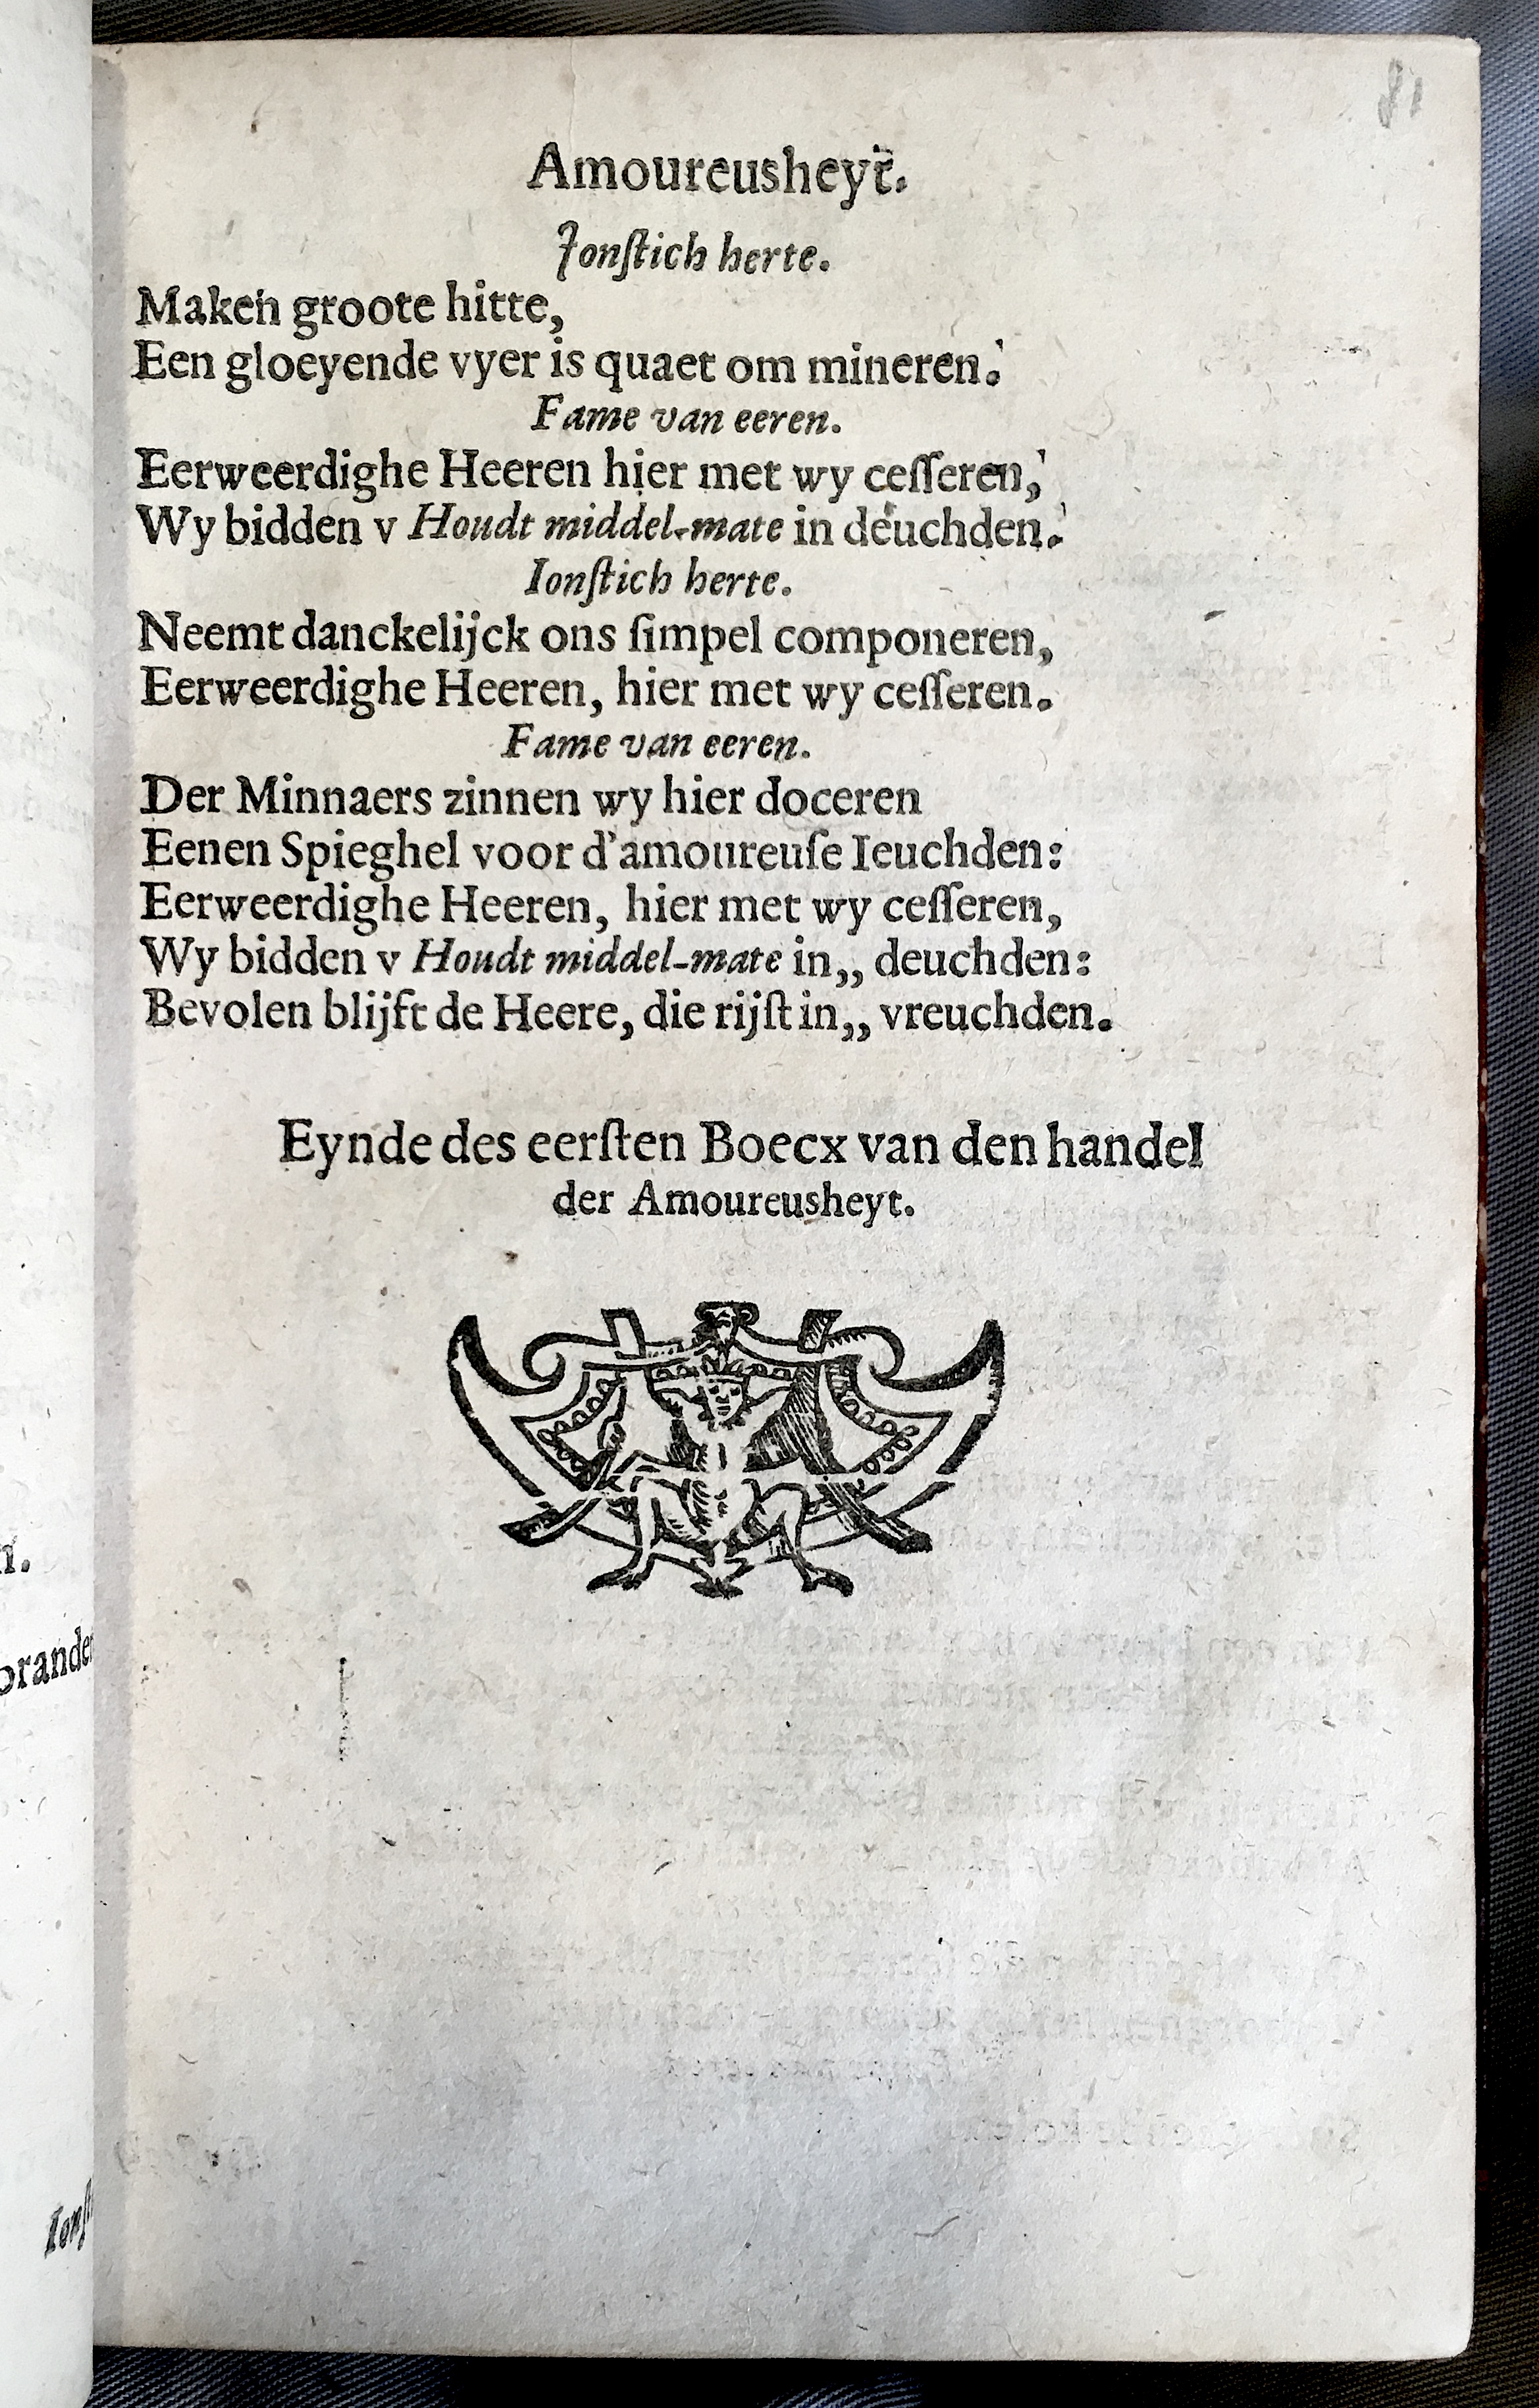 81
Amoureusheyt.
Jonſtich herte.
Maken groote hitte,
Een gloeyende vyer is quaet om mineren.
Fame van eeren.
Eerweerdighe Heeren hier met wy ceſſeren,
Wy bidden v Houdt middel-mate in deuchden.
Ionſtich herte.
Neemt danckelijck ons ſimpel componeren,
Eerweerdighe Heeren, hier met wy ceſſeren.
Fame van eeren.
Der Minnaers zinnen wy hier doceren
Eenen Spieghel voor d'amoureuſe Ieuchden:
Eerweerdighe Heeren, hier met wy ceſſeren,
Wy bidden v Houdt middel-mate in,, deuchden:
Bevolen blijft de Heere, die rijſt in,, vreuchden.
Eynde des eerſten Boecx van den handel
der Amoureusheyt.